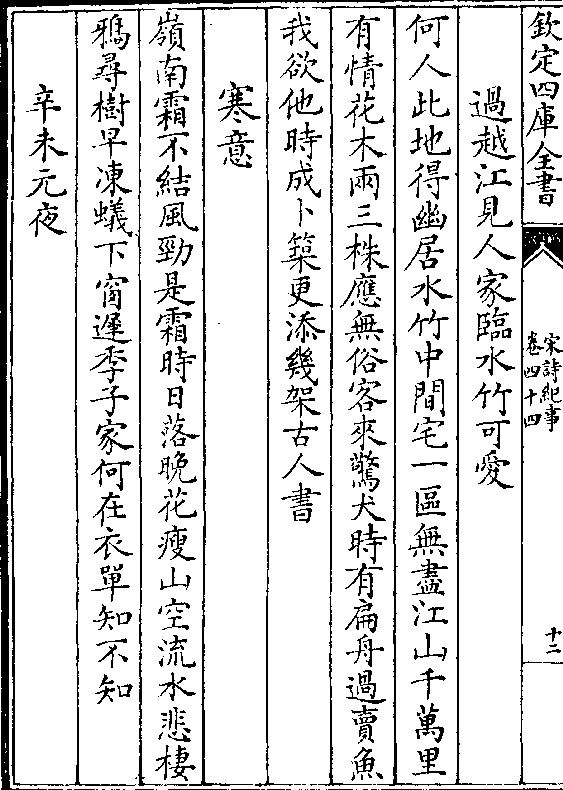 欽定四庫全書
宋詩紀事
卷四十四
十二
過越江見人家臨水竹可愛
何人此地得幽居水竹中間宅一區無盡江山千萬里
有情花木兩三株應無俗客來驚犬時有扁舟過賣魚
我欲他時成卜築更添幾架古人書
寒意
嶺南霜不結風勁是霜時日落晚花瘦山空流水悲棲
鴉尋樹早凍蟻下窗遲季子家何在衣單知不知
辛未元夜